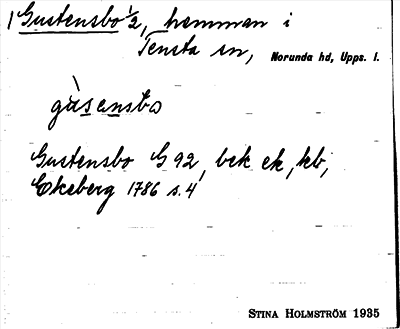 1 Gustensbo 1/2, hemman i
Tensta sn, Norunda hd, Upps. l.
gàsensbo
Gustensbo G 92, bek ek, kb,
Ekeberg 1786 s. 4
STINA HOLMSTRÖM 1935